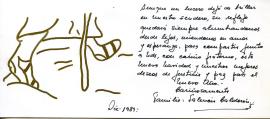 Aunque un lucero dejó de brillar
en nuestro sendero, su reflejo
quedará siempre alumbrándonos
desde lejos, uniéndonos en amor
y esperanza, para compartir junto a
uds, con cariño fraterno, esta
nueva navidad y nuestros mejores
deseos de justicia y paz para el
nuevo Año.
Cariñosamente
Familia:
Dic. 1985.-